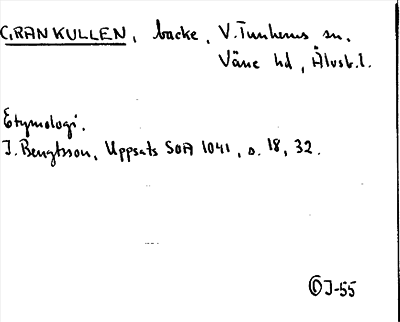 GRANKULLEN, backe, V. Tunhems sn.
Väne hd, Älvsb. l.
Etymologi.
I. Bengtsson, Uppsats SOA 1041, s. 18, 32.
OJ-55